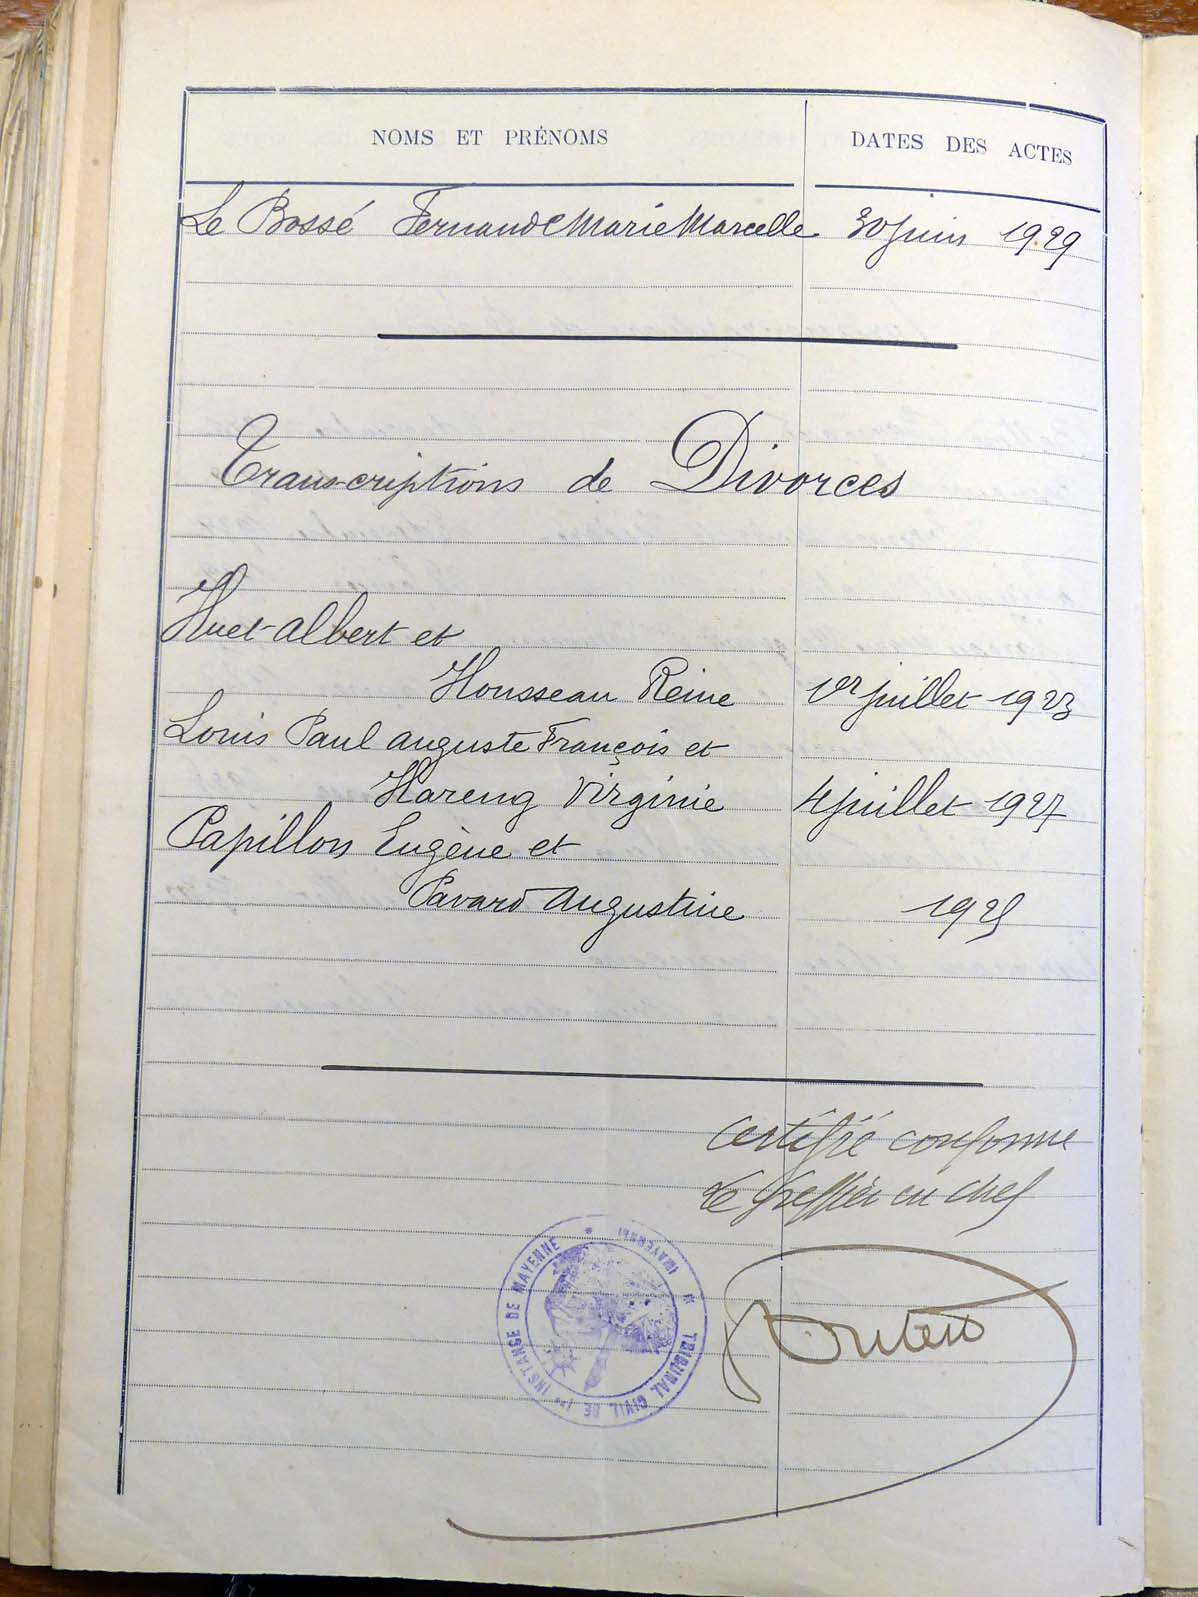 NOMS ET PRÉNOMS
DATES DES ACTES
Le Bossé Fernande Marie Marcelle 30 juin 1929
Transcriptions de Divorces
Huet Albert et
Housseau Reine 1er juillet 1923
Louis Paul Auguste François et
Hareng Virginie 4 juillet 1927
Papillon Eugène et
Pavard Augustine 1925
Certifié conforme
Le Greffier en chef
TRIBUNAL CIVIL DE 1re INSTANCE DE MAYENNE * (MAYENNE) *